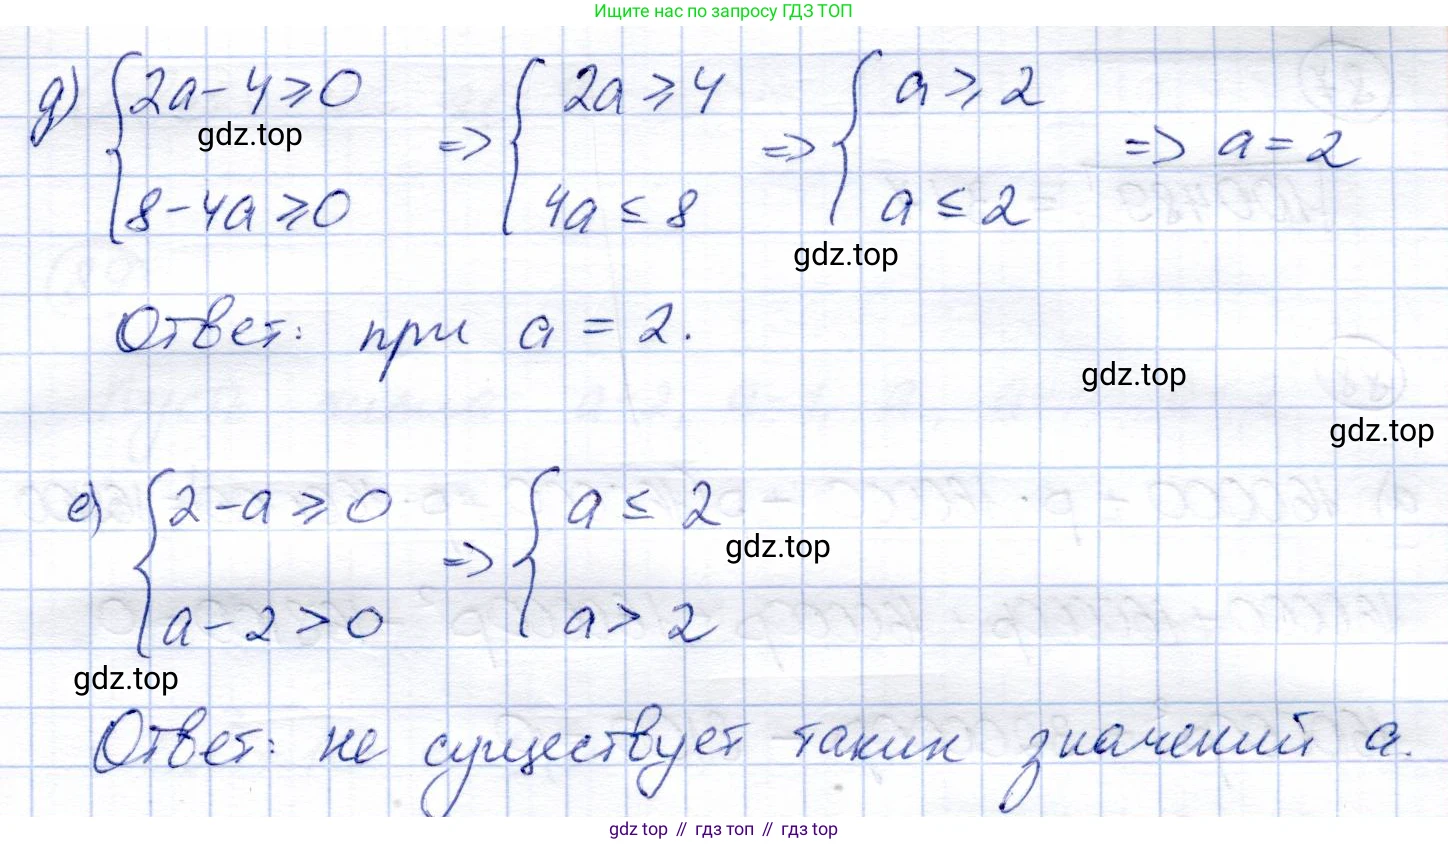 Ищите нас по запросу ГДЗ ТОП
д) { 2a - 4 ⩾ 0 => { 2a ⩾ 4 => { a ⩾ 2 => a = 2
gdz.top
8 - 4a ⩾ 0 4a ≤ 8 a ≤ 2
gdz.top
Ответ: при a = 2.
gdz.top
gdz.top
е) { 2 - a ⩾ 0 => { a ≤ 2
gdz.top
a - 2 > 0 a > 2
gdz.top
Ответ: не существует таких значений a.
gdz top // гдз топ // гдз top